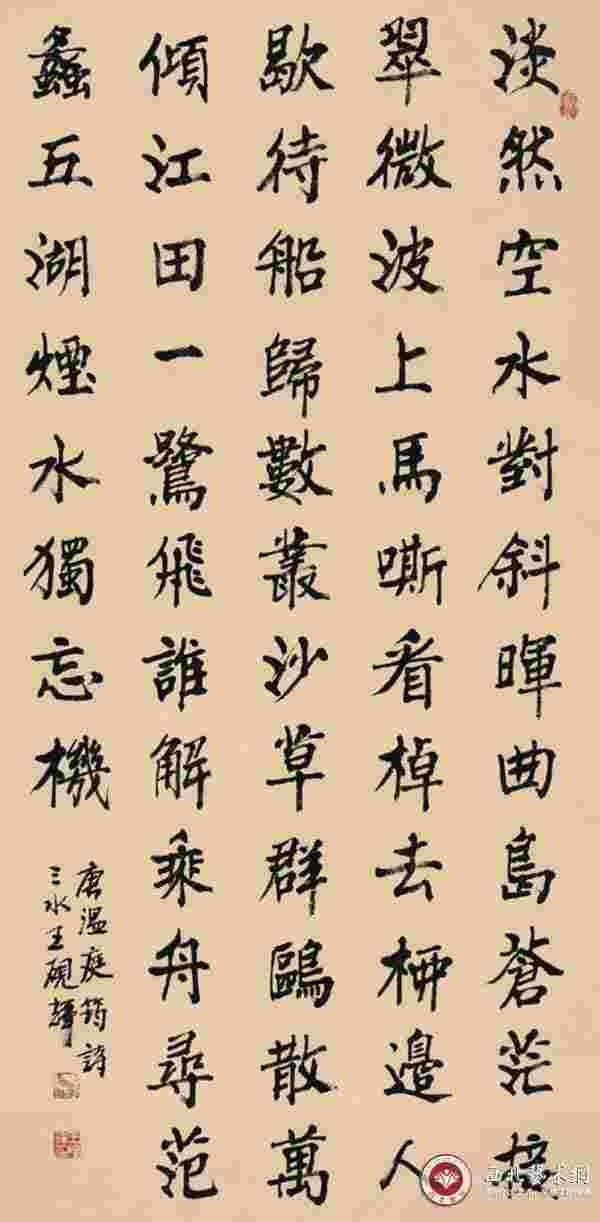 淡然空水對斜暉曲島蒼茫接
翠微波上馬嘶看棹去柳邊人
歇待船歸數叢沙草群鷗散萬
傾江田一鷺飛誰解乘舟尋范
蠡五湖煙水獨忘機
唐温庭筠詩
三水王硯輝